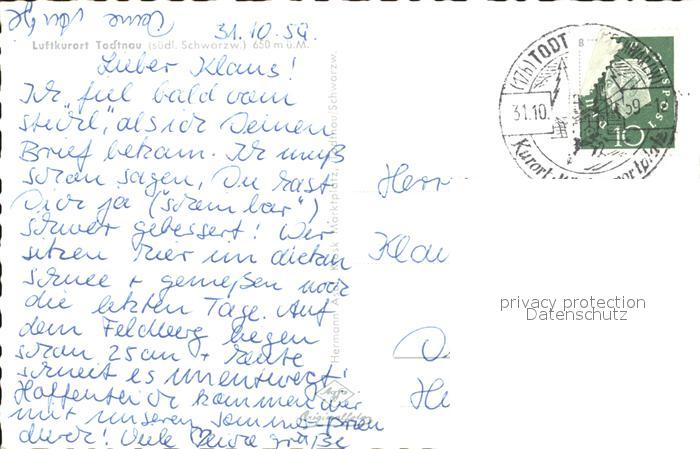 31.10.59.
Luftkurort Todtnau (südl. Schwarzw.) 650 m ü. M.
Lieber Klaus!
Ich "fiel bald vom
Stuhl", als ich Deinen
Brief bekam. Ich muß
schon sagen, Du hast
Dich ja ("scheinbar")
schwer gebessert! Wir
sitzen hier im dicken
Schnee + genießen noch
die letzten Tage. Auf
dem Feldberg liegen
schon 25 cm + heute
schneit es unentwegt!
Hoffentlich kommen wir
mit unseren Sommer
durch! Viele Grüße
Deine
Herr
Klau
He
TODT
31.10.
59
10
privacy protection
Datenschutz